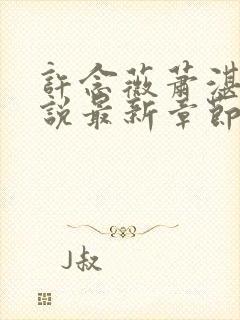 許念薇蕭湛
說最新章節
J叔